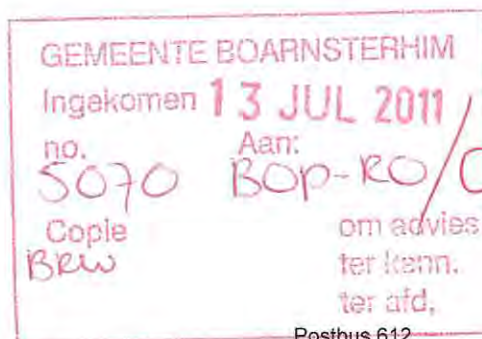 GEMEENTE BOARNSTERHIM
Ingekomen 13 JUL 2011
no. Aan:
5070 BOP-RO/
Copie om advies
BRW ter kenn.
ter afd.
Postbus 612